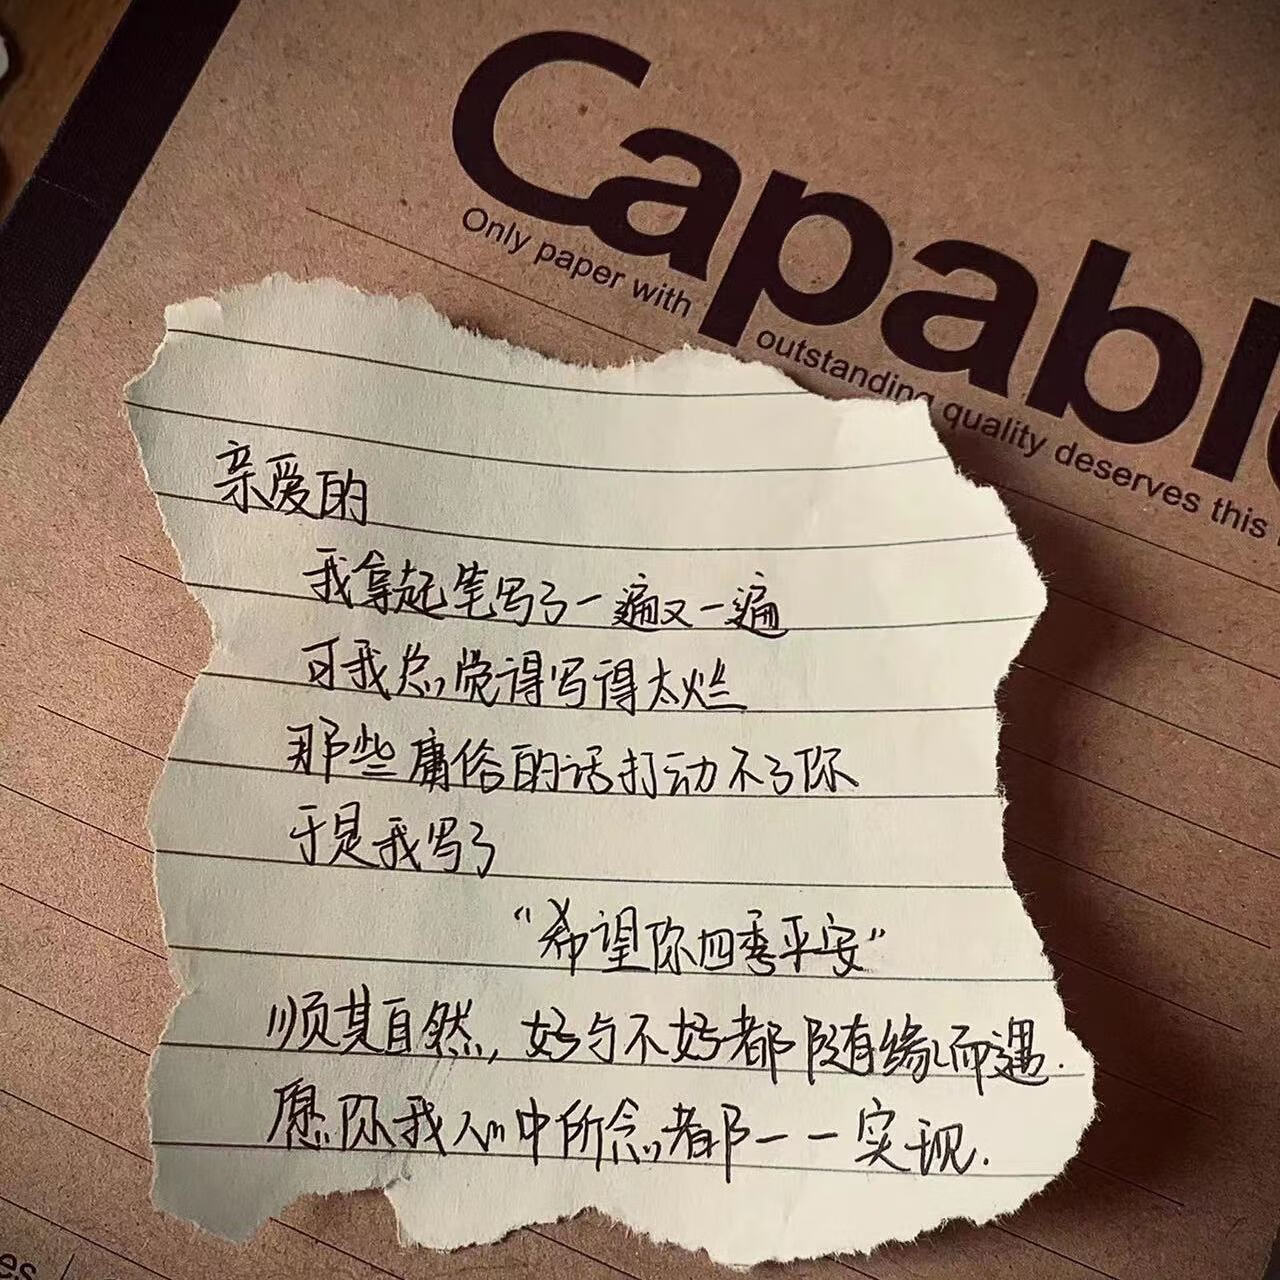 Capabl
Only paper with outstanding quality deserves this
亲爱的
我拿起笔写了一遍又一遍
可我总觉得写得太烂
那些庸俗的话打动不了你
于是我写了
“希望你四季平安”
顺其自然,好与不好都随缘而遇.
愿你我心中所念都一一实现.
es